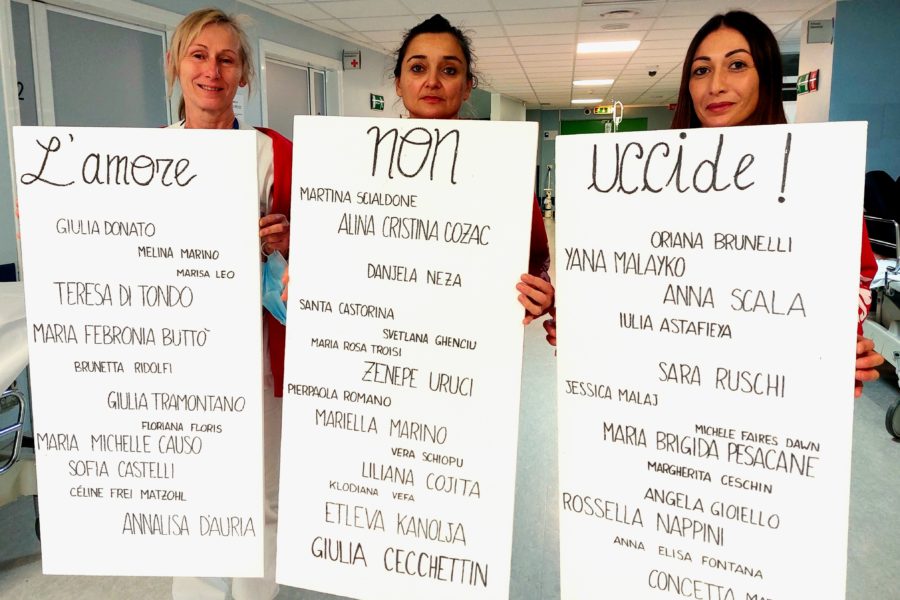 L'amore
GIULIA DONATO
MELINA MARINO
MARISA LEO
TERESA DI TONDO
MARIA FEBRONIA BUTTO'
BRUNETTA RIDOLFI
GIULIA TRAMONTANO
FLORIANA FLORIS
MARIA MICHELLE CAUSO
SOFIA CASTELLI
CÉLINE FREI MATZOHL
ANNALISA D'AURIA
NON
MARTINA SCIALDONE
ALINA CRISTINA COZAC
DANJELA NEZA
SANTA CASTORINA
SVETLANA GHENCIU
MARIA ROSA TROISI
ZENEPE URUCI
PIERPAOLA ROMANO
MARIELLA MARINO
VERA SCHIOPU
LILIANA COJITA
KLODIANA VEFA
ETLEVA KANOLJA
GIULIA CECCHETTIN
UCCIDE!
ORIANA BRUNELLI
YANA MALAYKO
ANNA SCALA
IULIA ASTAFIEYA
SARA RUSCHI
JESSICA MALAJ
MICHELE FAIRES DAWN
MARIA BRIGIDA PESACANE
MARGHERITA CESCHIN
ANGELA GIOIELLO
ROSSELLA NAPPINI
ANNA ELISA FONTANA
CONCETTA